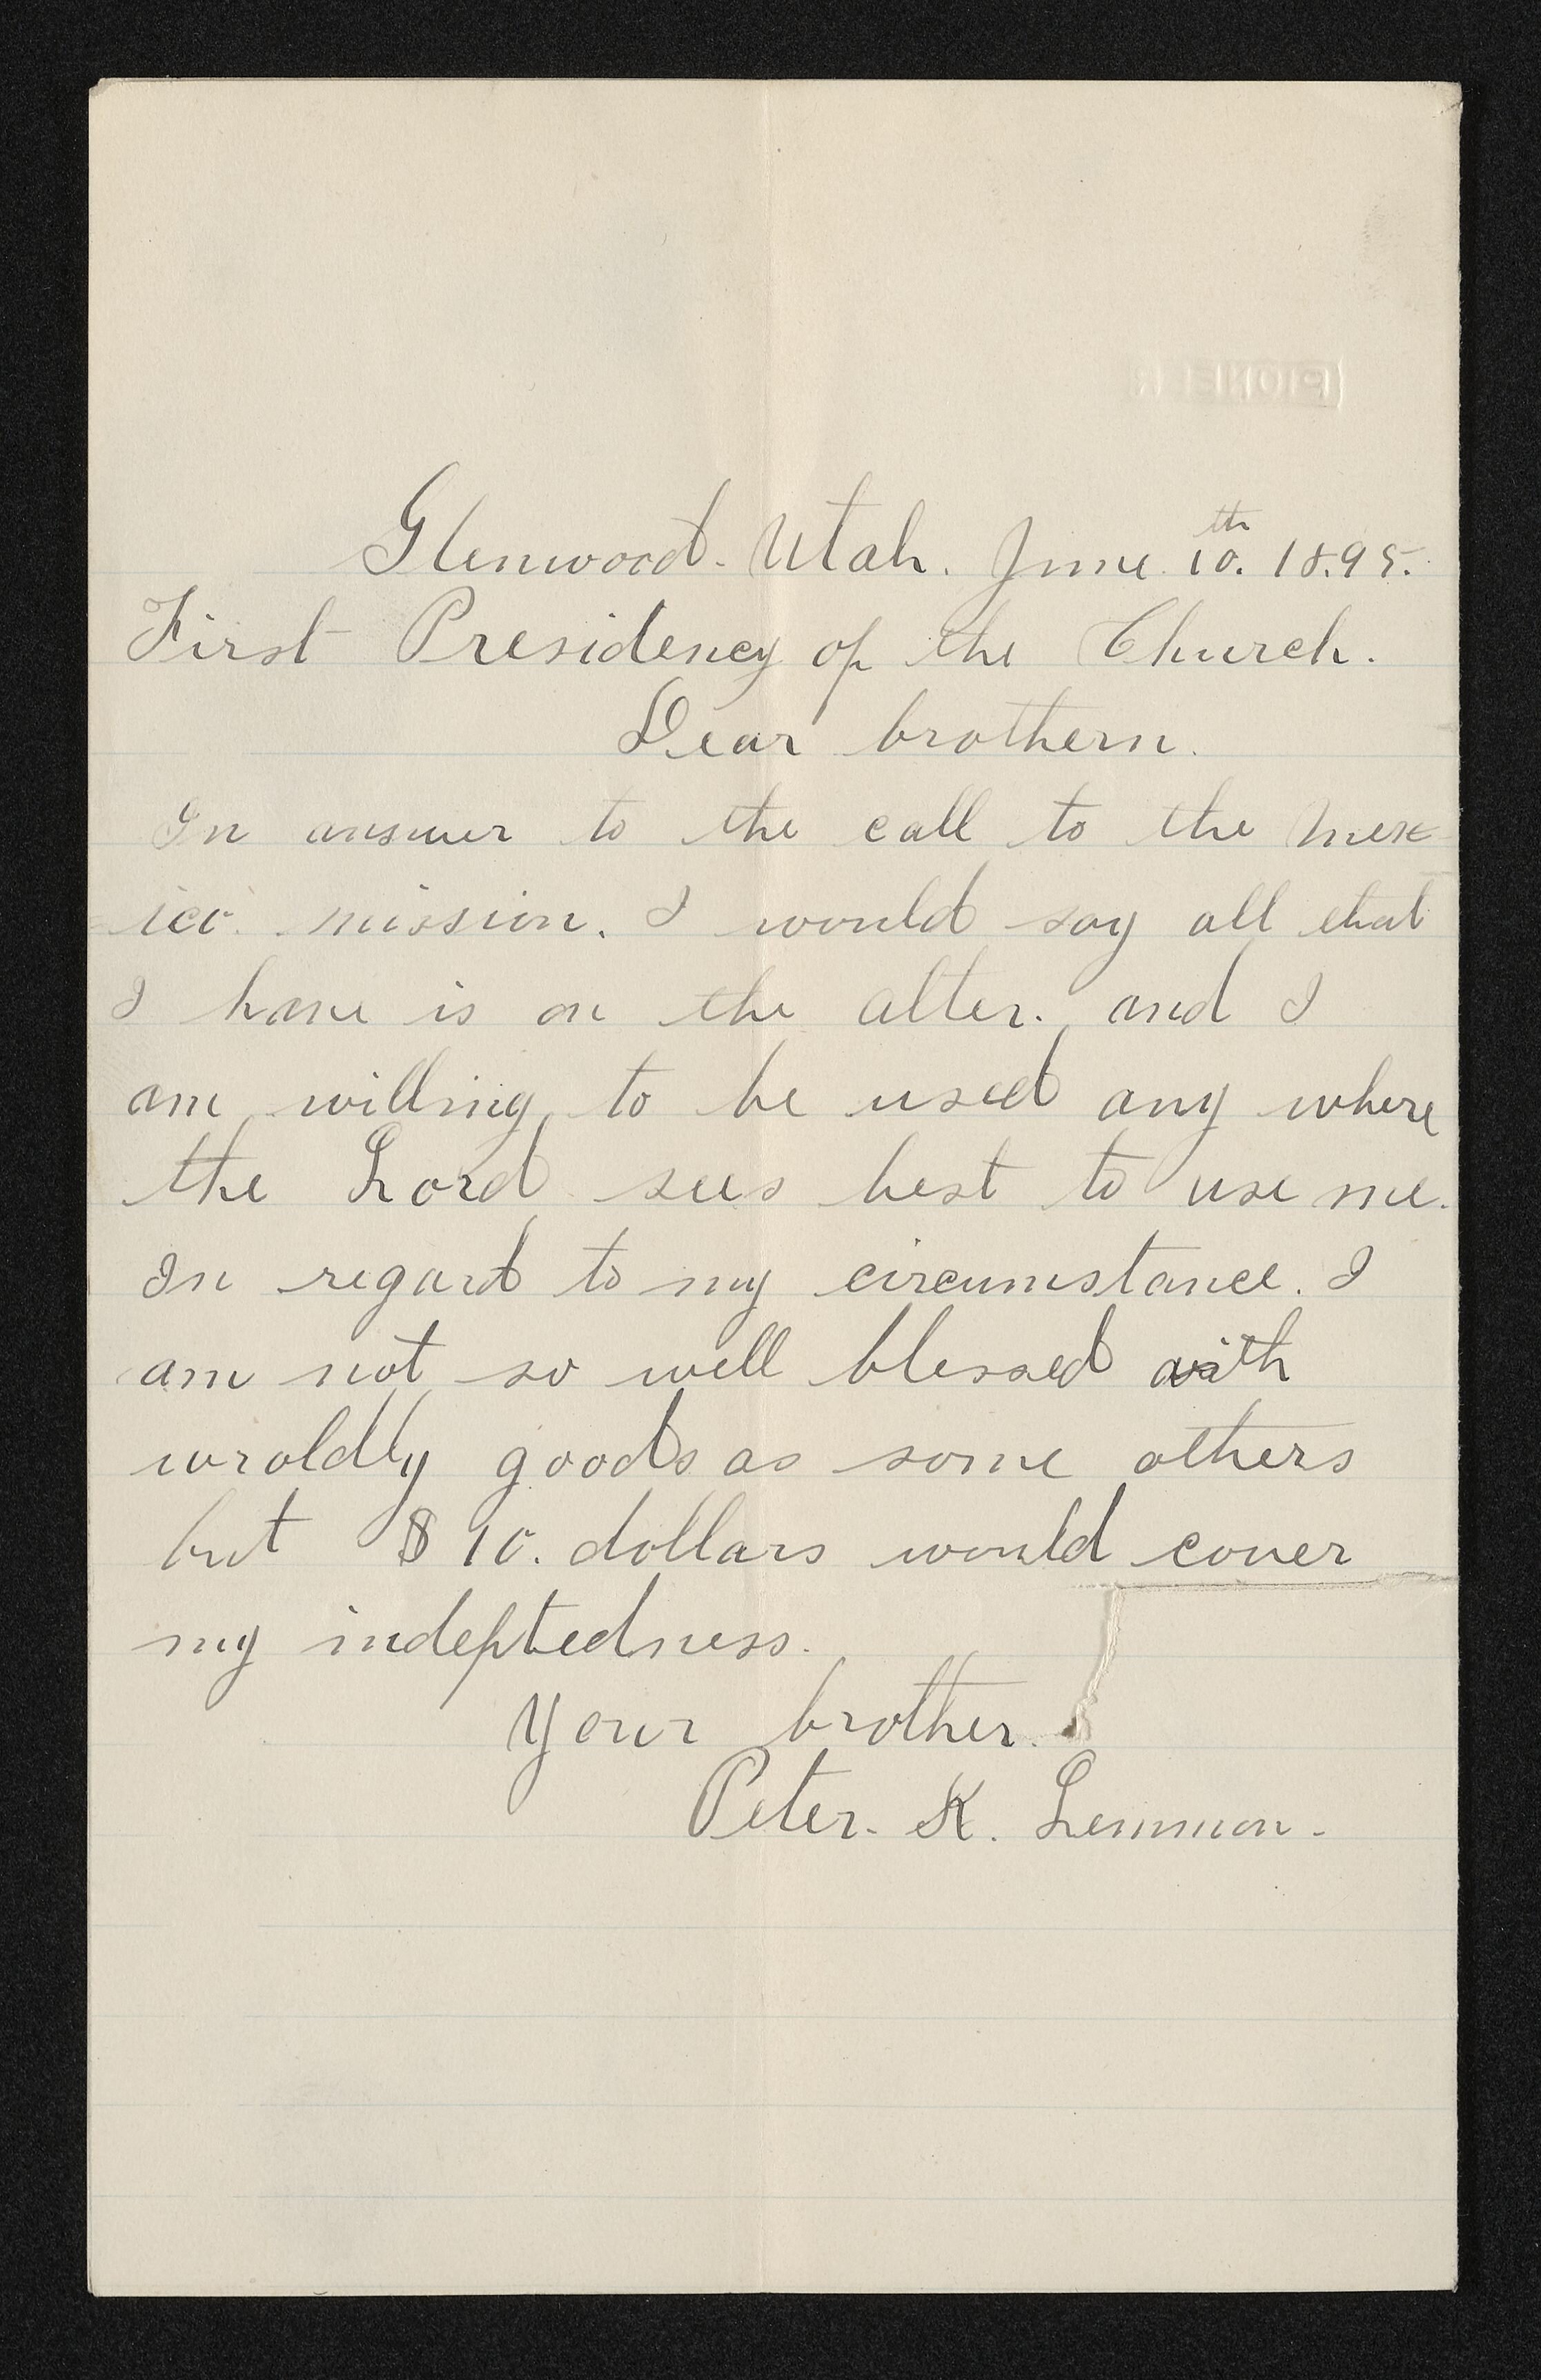 PIONEER
Glenwood. Utah. June 10.th 18.95.
First Presidency of the Church.
Dear brothern.
In answer to the call to the Mex
ico. mission. I would say all that
I have is on the alter. and I
am willing to be used any where
the Lord sees best to use me.
In regard to my circumstance. I
am not so well blessed with
wroldly goods as some others
but $10. dollars would cover
my indeptedness.
Your brother.
Peter. K. Lemmon.